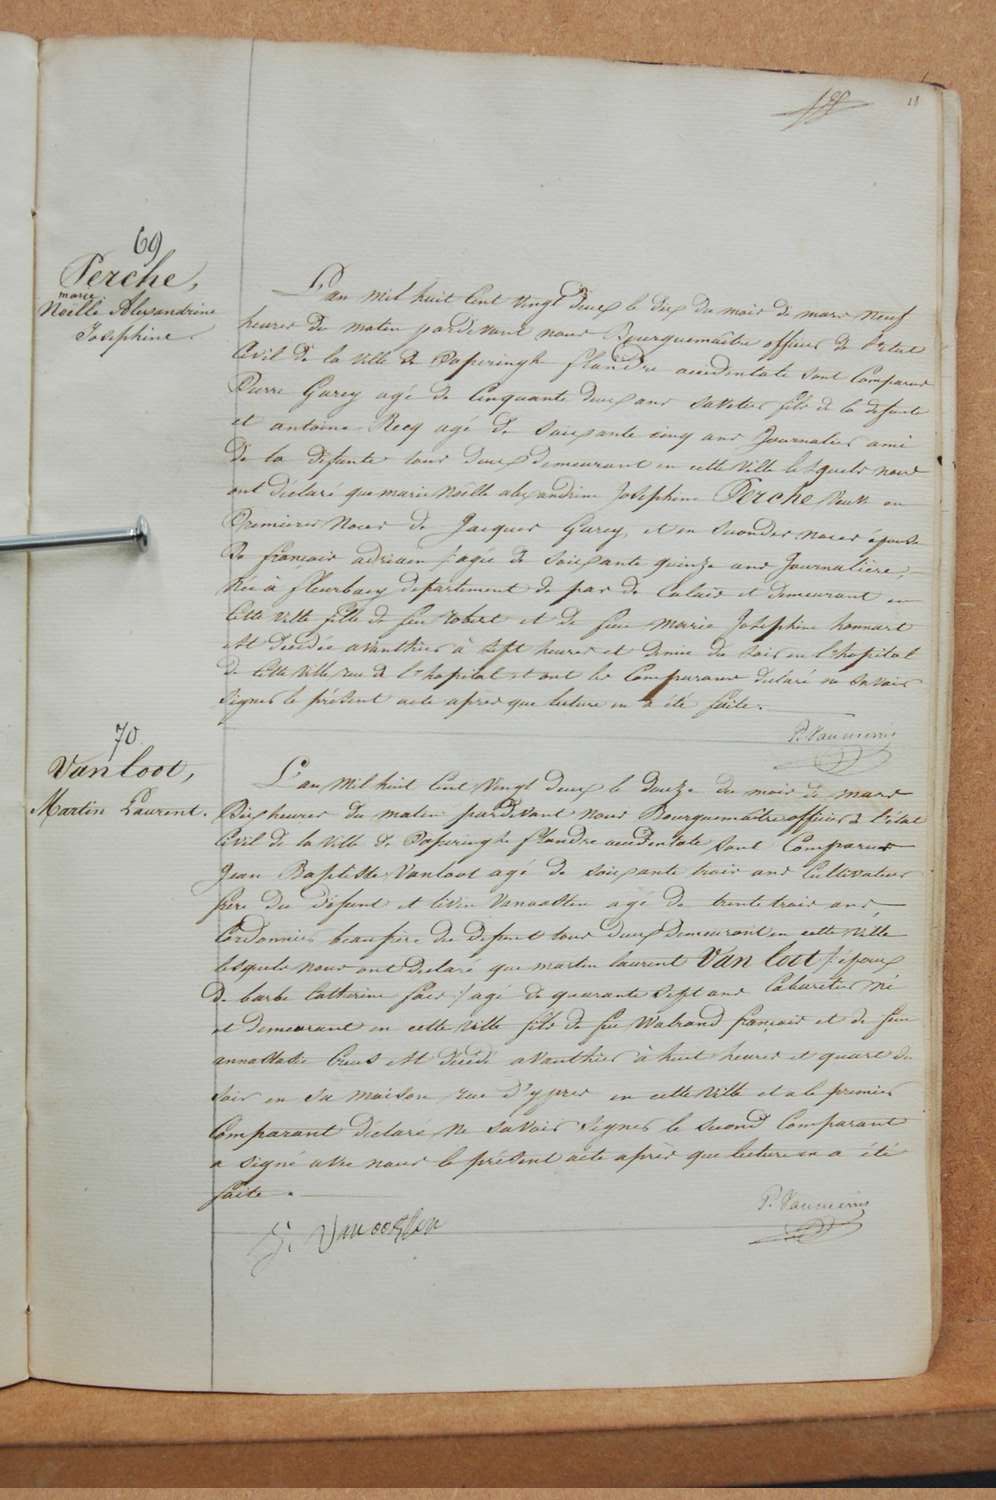 18
69
Perche,
marie
Noëlle Alexandrine
Josephine.
L'an mil huit Cent vingt deux le dix du mois de mars neuf
heures du matin pardevant nous Bourguemaître officier de l'etat
Civil de la ville de Poperingh flandre occidentale sont Comparus
Pierre Gurey agé de Cinquante deux ans savetier fils de la defunte
et antoine Recq agé de soixante cinq ans Journalier ami
de la défunte tous deux demeurant en cette ville lesquels nous
ont déclaré que marie Noëlle alexandrine Josephine Perche veuve en
Premieres Noces de Jacques Gurey, et en secondes noces épouse
de françois adriaen / agée de soixante quinze ans Journaliere,
née à fleurbaey departement de pas de Calais et demeurant en
Cette ville fille de feu robert et de feue marie Josephine honnart
est decedée avanthier à sept heures et demie du soir en l'hopital
de Cette ville, rue de l'hopital et ont les Comparans declaré ne savoir
signer le présent acte après que lecture en a été faite.
P. Vanmerris
70
Van loot,
Martin Laurent.
L'an Mil huit Cent Vingt deux le douze du mois de mars
Dix heures du matin pardevant Nous Bourguemaître officier de l'état
Civil de la ville de Poperingh flandre occidentale sont Comparus
Jean Baptiste Vanloot agé de soixante trois ans Cultivateur
frere du défunt et livin Vanoosten agé de trente trois ans,
Cordonnier beaufrere du defunt tous deux demeurant en cette ville
lesquels nous ont declaré que martin laurent Van loot / époux
de barbe Catherine / agé de quarante sept ans Cabaretier né
et demeurant en cette ville fils de feu Walrand françois et de feue
annastasie est décédé avanthier à huit heures et quart du
soir en sa maison rue d'ypres en cette ville et a le premier
Comparant déclaré ne savoir signer le second Comparant
a signé avec nous le présent acte après que lecture en a été
faite.
P. Vanmerris
Vanoosten